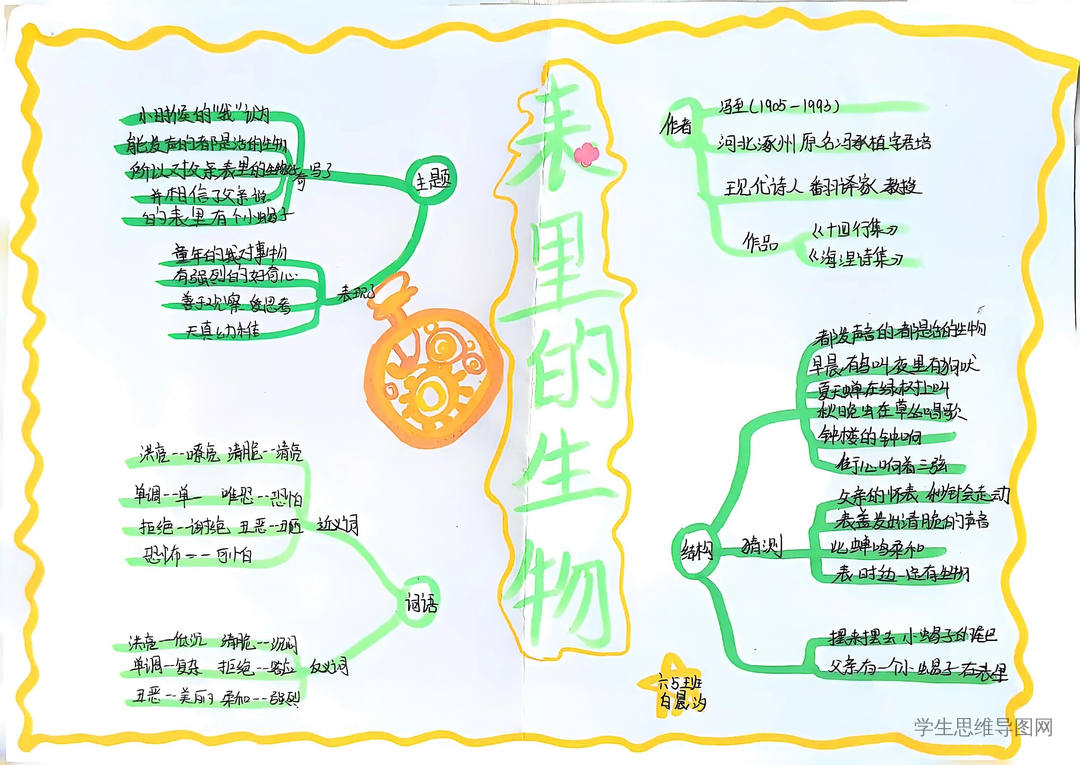 表里的生物
主题
小时候的"我"认为
能发声的都是活的生物
所以对父亲表里的生物好奇
写了
并相信了父亲说
的表里有个小蝎子
童年的我对事物
有强烈的好奇心
善于观察 爱思考
天真幼稚
表现了
词语
洪亮--嘹亮 清脆--清亮
单调--单一 唯恐--恐怕
拒绝--谢绝 丑恶--丑陋
恐怖--可怕
近义词
洪亮--低沉 清脆--沉闷
单调--复杂 拒绝--答应
丑恶--美丽 柔和--强烈
反义词
作者
冯至(1905-1993)
河北涿州 原名冯承植 字君培
现代诗人 翻译家 教授
作品
《十四行集》
《海涅诗集》
结构
都发声音的都是活的生物
早晨有鸟叫夜里有狗吠
夏天蝉在绿树上叫
秋晚虫在草丛唱歌
钟楼的钟响
街心响着三弦
猜测
父亲的怀表 秒针会走动
表盖发出清脆的声音
比蝉鸣柔和
表 时 一定有生物
摆来摆去 小蝎子的尾巴
父亲有一个小蝎子在表里
六5班
白晨汐
学生思维导图网